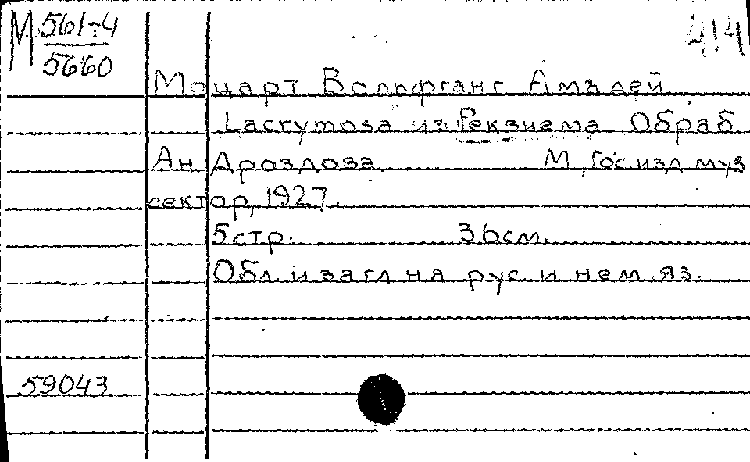 М 561-4
5660
414
Моцарт Вольфганг Амадей
Lacrymosa из Реквиема Обраб
Ан Дроздова М, Гос изд муз
сектор, 1927.
5 стр. 36 см.
Обл. и загл на рус и нем яз.
59043